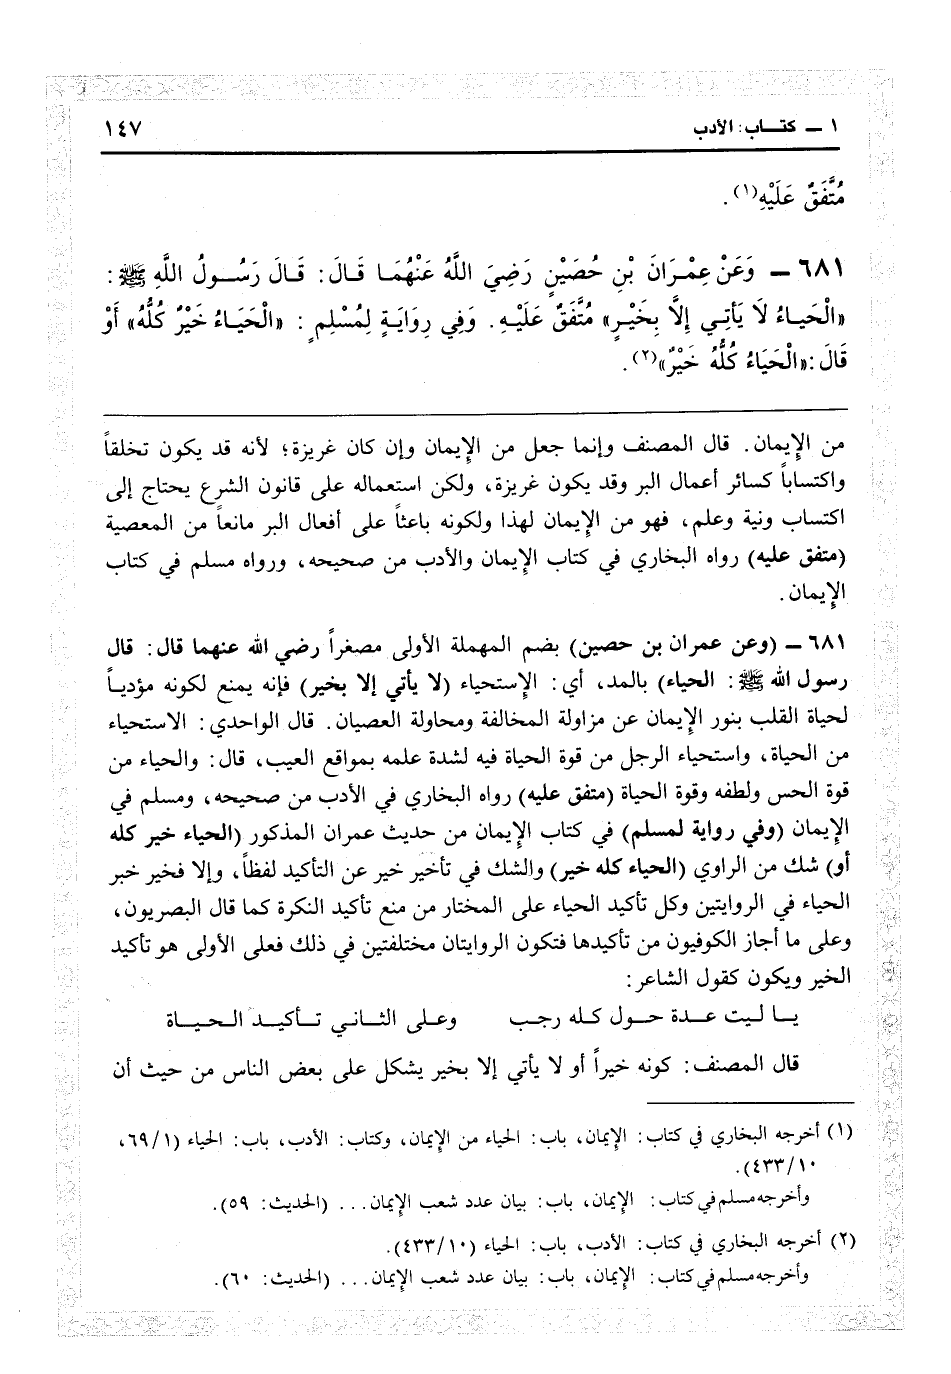 ١ ـ كتـــاب: الأدب
١٤٧
مُتَّفَقٌ عَلَيْهِ(١).
٦٨١ ـ وَعَنْ عِمْرَانَ بْنِ حُصَيْنٍ رَضِيَ اللَّهُ عَنْهُمَا قَالَ: قَالَ رَسُولُ اللَّهِ ﷺ:
«الْحَيَاءُ لَا يَأْتِي إِلَّا بِخَيْرٍ» مُتَّفَقٌ عَلَيْهِ. وَفِي رِوَايَةٍ لِمُسْلِمٍ: «الْحَيَاءُ خَيْرٌ كُلُّهُ» أَوْ
قَالَ: «الْحَيَاءُ كُلُّهُ خَيْرٌ»(٢).
من الإِيمان. قال المصنف وإنما جعل من الإِيمان وإن كان غريزة؛ لأنه قد يكون تخلقاً
واكتساباً كسائر أعمال البر وقد يكون غريزة، ولكن استعماله على قانون الشرع يحتاج إلى
اكتساب ونية وعلم، فهو من الإِيمان لهذا ولكونه باعثاً على أفعال البر مانعاً من المعصية
(متفق عليه) رواه البخاري في كتاب الإِيمان والأدب من صحيحه، ورواه مسلم في كتاب
الإِيمان.
٦٨١ ـ (وعن عمران بن حصين) بضم المهملة الأولى مصغراً رضي الله عنهما قال: قال
رسول الله ﷺ: الحياء) بالمد، أي: الإِستحياء (لا يأتي إلا بخير) فإنه يمنع لكونه مؤدياً
لحياة القلب بنور الإِيمان عن مزاولة المخالفة ومحاولة العصيان. قال الواحدي: الاستحياء
من الحياة، واستحياء الرجل من قوة الحياة فيه لشدة علمه بمواقع العيب، قال: والحياء من
قوة الحس ولطفه وقوة الحياة (متفق عليه) رواه البخاري في الأدب من صحيحه، ومسلم في
الإِيمان (وفي رواية لمسلم) في كتاب الإِيمان من حديث عمران المذكور (الحياء خير كله
أو) شك من الراوي (الحياء كله خير) والشك في تأخير خير عن التأكيد لفظاً، وإلا فخير خبر
الحياء في الروايتين وكل تأكيد الحياء على المختار من منع تأكيد النكرة كما قال البصريون،
وعلى ما أجاز الكوفيون من تأكيدها فتكون الروايتان مختلفتين في ذلك فعلى الأولى هو تأكيد
الخير ويكون كقول الشاعر:
يا ليت عدة حول كله رجب وعلى الثاني تأكيد الحياة
قال المصنف: كونه خيراً أو لا يأتي إلا بخير يشكل على بعض الناس من حيث أن
(١) أخرجه البخاري في كتاب: الإِيمان، باب: الحياء من الإِيمان، وكتاب: الأدب، باب: الحياء (٦٩/١،
٤٣٣/١٠).
وأخرجه مسلم في كتاب: الإِيمان، باب: بيان عدد شعب الإِيمان... (الحديث: ٥٩).
(٢) أخرجه البخاري في كتاب: الأدب، باب: الحياء (٤٣٣/١٠).
وأخرجه مسلم في كتاب: الإِيمان، باب: بيان عدد شعب الإِيمان... (الحديث: ٦٠).